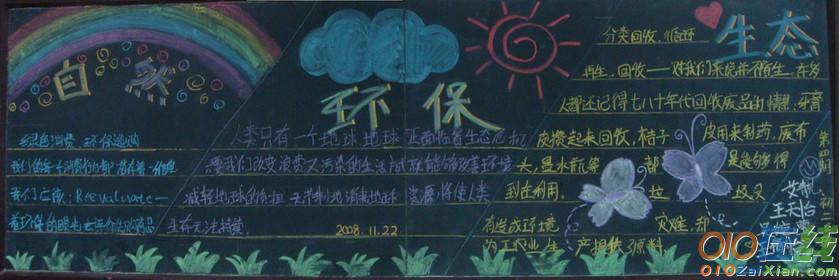 自然
绿色消费 环保选购
我们的每个消费行为都潜在着一种
我们应该:Reevaluate—
着环保的眼光去评价选购商品
环保
人类只有一个地球 地球正面临着生态危机
要我们改变浪费又污染的生活方式
减轻地球的负担
生存无法持续
2008.11.22
生态
分类回收,循环
再生,回收——对我们来说并不陌生,许多
人都还记得七八十年代回收废品的情景:牙膏
皮攒起来回收,桔子皮用来制药,废布
头,墨水瓶等都是能够得
到在利用。垃圾又
有造成环境灾难,却
为工农业生产提供原料
第四期
王天怡
初二
010在线
010ZaiXian.com